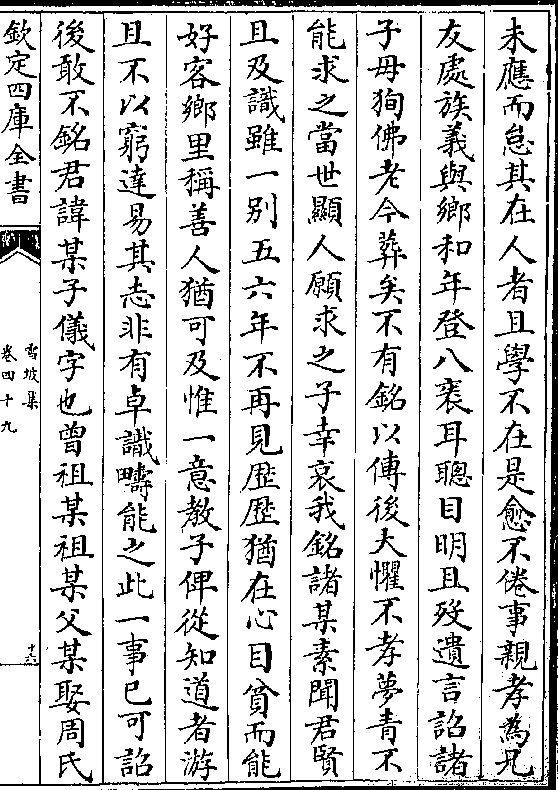 未應而怠其在人者且學不在是愈不倦事親孝為兄
友處族義與鄉和年登八袠耳聰目明且歿遺言詔諸
子毋狥佛老今葬矣不有銘以傳後大懼不孝夢青不
能求之當世顯人願求之子幸哀我銘諸某素聞君賢
且及識雖一別五六年不再見歴歴猶在心目貧而能
好客鄉里稱善人猶可及惟一意教子俾從知道者游
且不以窮達易其志非有卓識疇能之此一事已可詔
後敢不銘君諱某子儀字也曾祖某祖某父某娶周氏
欽定四庫全書
雪坡集
卷四十九
十六